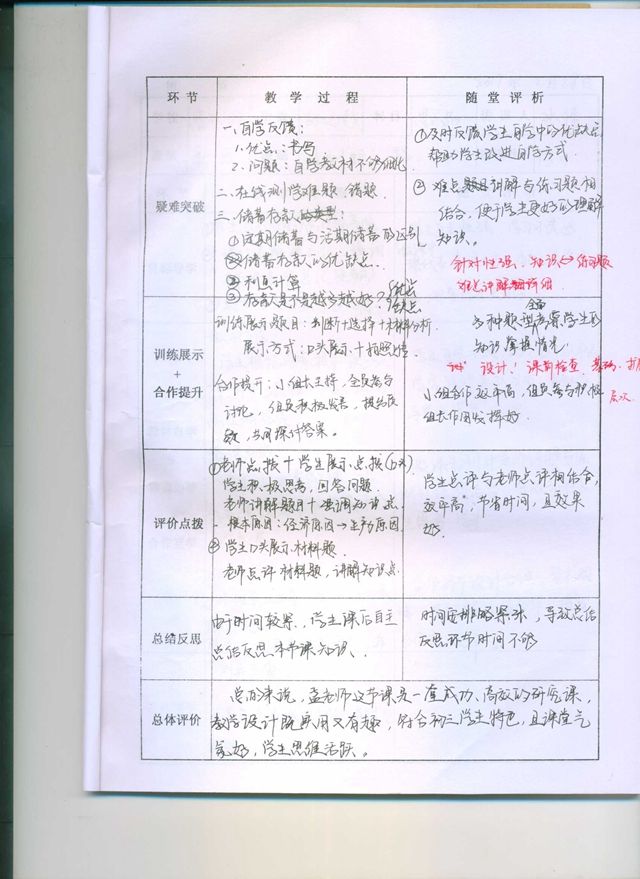 环节 教学过程 随堂评析
疑难突破
一、自学反馈：
1.优点：书写
2.问题：自学教材不够细化
二、在线测学难题、错题
三、储蓄存款的类型：
①定期储蓄与活期储蓄的区别
②储蓄存款的优缺点
③利息计算
⑤存款是不是越多越好？优点
缺点
①及时反馈学生自学中的优缺点
帮助学生改进自学方式
②难点题目讲解与练习题相
结合，便于学生更好的理解
知识。
针对性强、知识↔练习题
难点讲解详细
训练展示
+
合作提升
训练展示题目：判断+选择+材料分析
展示方式：口头展示+拍照上传
合作提升：小组长主持，全员参与
讨论，组员积极发言，提出反
，共同探讨答案。
各种题型考察学生的
全面
知识掌握情况
设计！课前检查、基础、扩
层次
小组合作效率高，组员参与积极
组长作用发挥好
评价点拨
①老师点拨+学生展示点拨(功不)
学生积极思考，回答问题
老师讲解题目+强调知识点
-根本原因：经济原因→生产原因
②学生口头展示材料题
老师点评材料题，讲解知识点
学生点评与老师点评相结合，
效率高，节省时间，且效果
好
总结反思
由于时间较紧，学生课后自主
总结反思本节课知识、
时间安排略紧张，导致总结
反思环节时间不够
总体评价
总的来说，孟老师这节课是一直成功、高效的研究课，
教学设计既实用又有趣，符合初三学生特色，且课堂气
氛好，学生思维活跃。